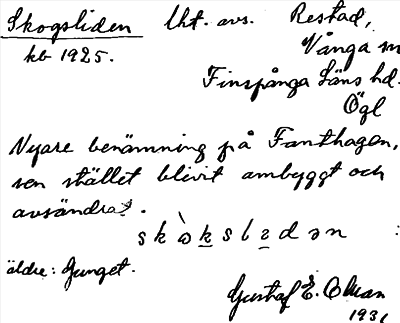 Skogsliden lht. avs. Restad,
kb 1925. Vånga sn
Finspånga läns hd.
Ögl
Nyare benämning på Fanthagen,
sen stället blivit ombyggt och
avsöndrat.
äldre: Gunget.
Gustaf E.
1931